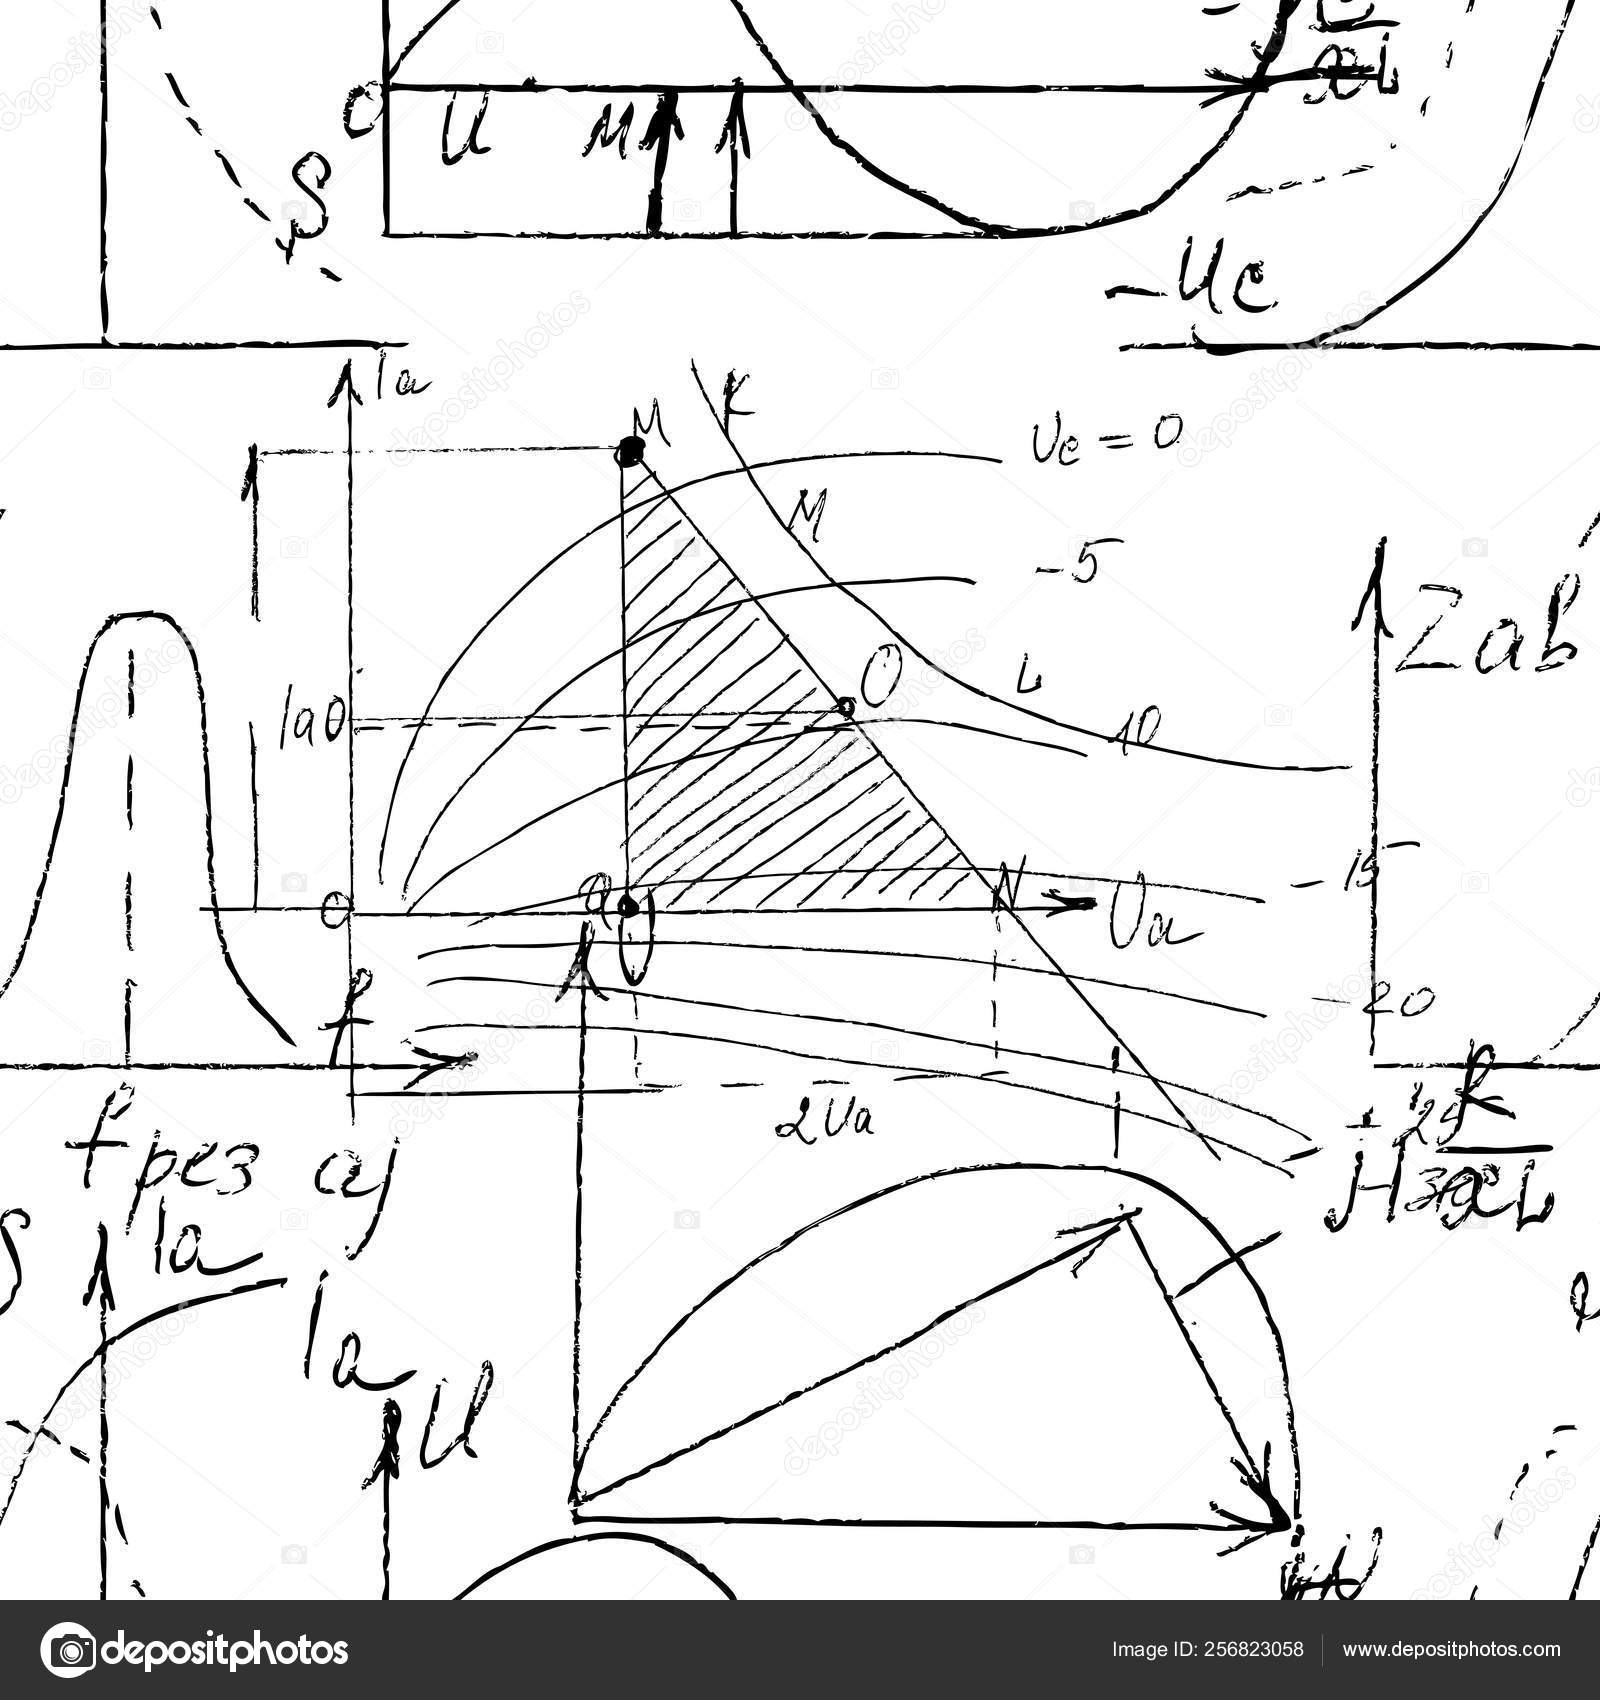 O
U
M
S
-Uc
Ia
M
K
Uc = 0
M
-5
Zab
O
L
Ia0
10
-15
a
N
O
Ua
f
-20
2Ua
k
f рез
Ia
Ia
U
depositphotos
Image ID: 256823058
www.depositphotos.com